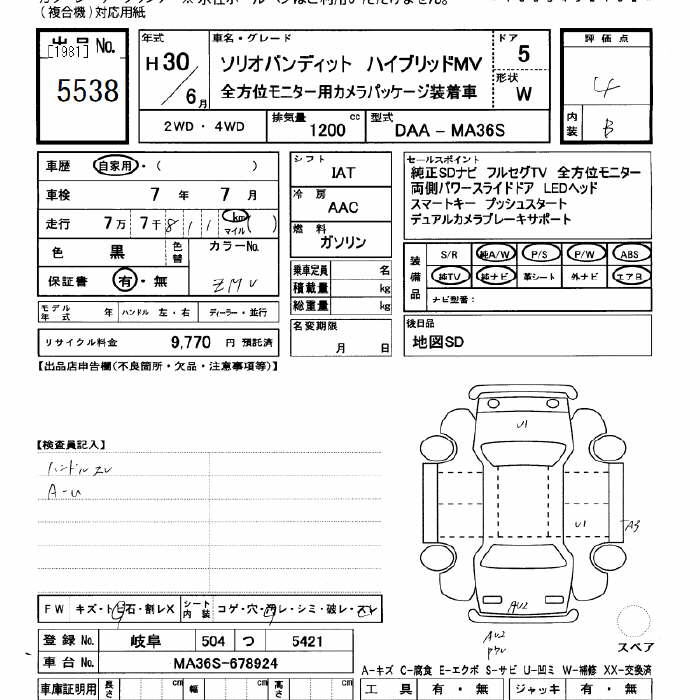 (複合機)対応用紙
出品 No.
[1981]
5538
年式
H 30 / 6 月
車名・グレード
ソリオバンディット ハイブリッドMV
全方位モニター用カメラパッケージ装着車
ドア
5
形状
W
評価点
4
内装
B
2WD ・ 4WD
排気量 1200 cc
型式 DAA － MA36S
車歴 自家用 ・ ( )
車検 7 年 7 月
走行 7 万 7 千 8 1 1 km マイル ( )
色 黒 色替 カラーNo.
保証書 有 ・ 無 ZMV
モデル年式 年 ハンドル 左・右 ディーラー・並行
リサイクル料金 9,770 円 預託済
シフト
IAT
冷房
AAC
燃料
ガソリン
乗車定員 名
積載量 kg
総重量 kg
名変期限
月 日
セールスポイント
純正SDナビ フルセグTV 全方位モニター
両側パワースライドドア LEDヘッド
スマートキー プッシュスタート
デュアルカメラブレーキサポート
装備品
S/R 純A/W P/S P/W ABS
純TV 純ナビ 革シート 外ナビ エアB
ナビ型番:
後日品
地図SD
【出品店申告欄(不良箇所・欠品・注意事項等)】
【検査員記入】
ハンドルスレ
A-U
U1
U1
TA3
AU2
AU2
スペア
FW キズ・ト石・割レX シート内装 コゲ・穴・汚レ・シミ・破レ・スレ
登録 No. 岐阜 504 つ 5421
車台 No. MA36S-678924
A-キズ C-腐食 E-エクボ S-サビ U-凹ミ W-補修 XX-交換済
車庫証明用 長さ cm 幅 cm 高さ cm
工具 有 ・ 無 ジャッキ 有 ・ 無